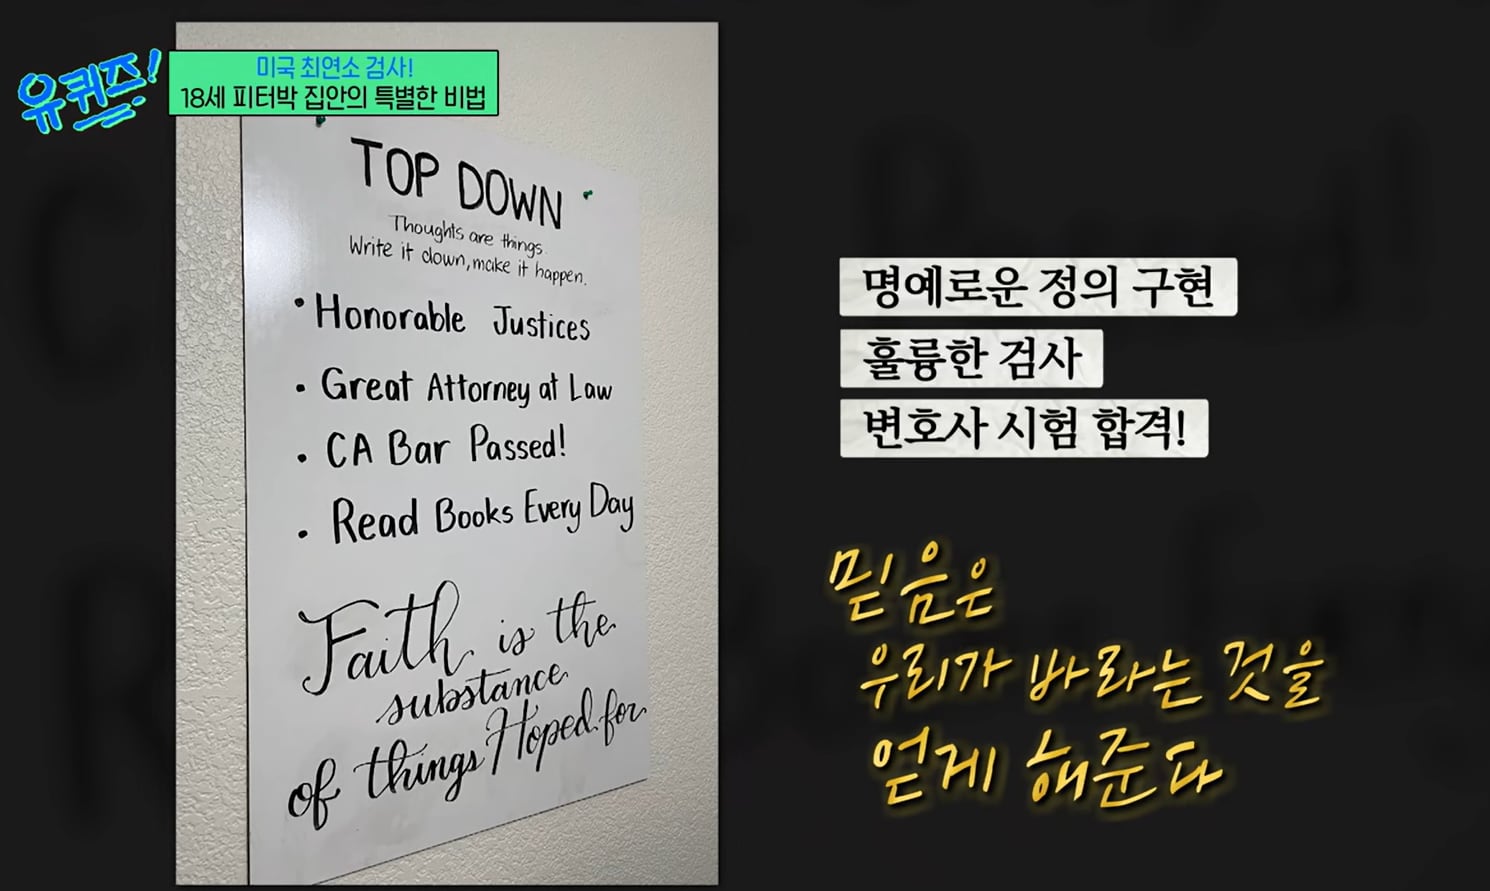 유퀴즈!
미국 최연소 검사!
18세 피터박 집안의 특별한 비법
TOP DOWN
Thoughts are things.
Write it down, make it happen.
• Honorable Justices
• Great Attorney at Law
• CA Bar Passed!
• Read Books Every Day
Faith is the
substance
of things Hoped for
명예로운 정의 구현
훌륭한 검사
변호사 시험 합격!
믿음은
우리가 바라는 것을
얻게 해준다